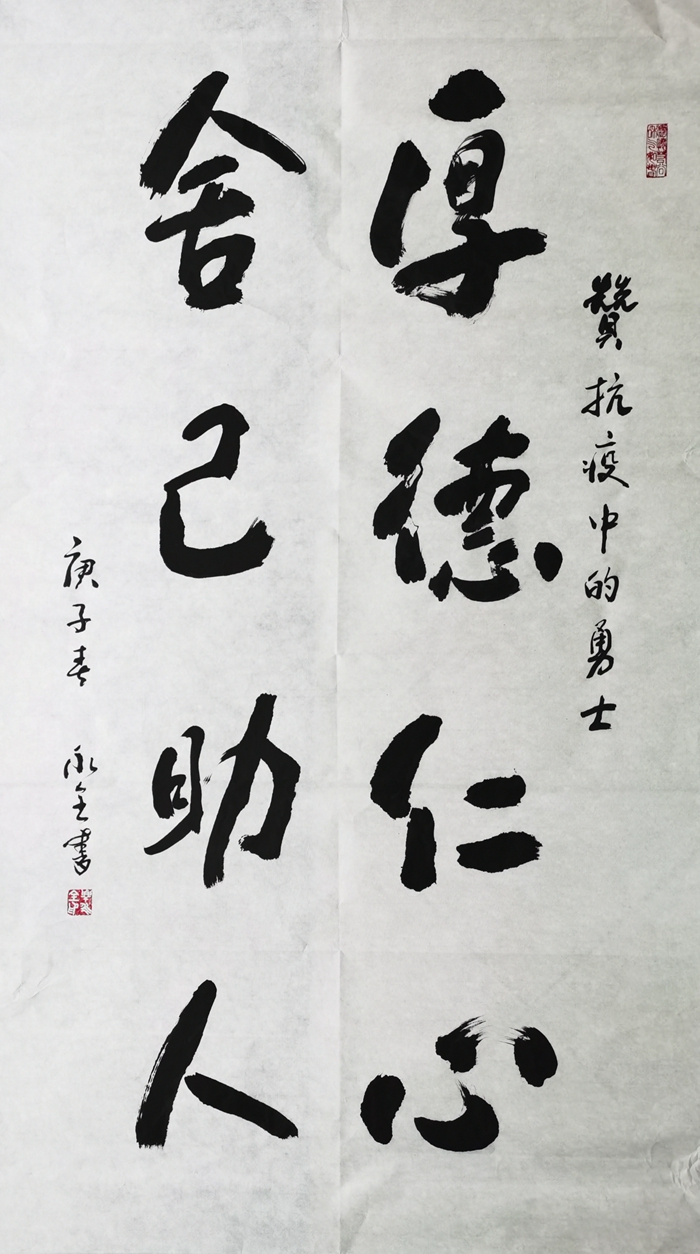 赞抗疫中的勇士
厚德仁心
舍己助人
庚子春 永全書